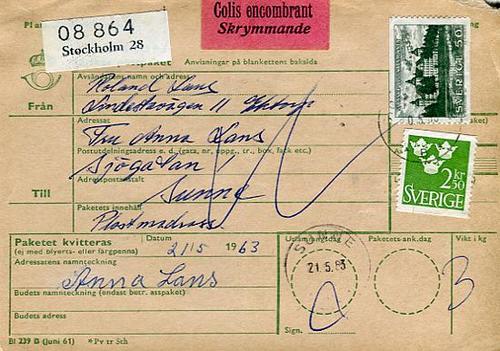 08 864
Stockholm 28
Colis encombrant
Skrymmande
Anvisningar på blankettens baksida
Avsändarens namn och adress
Från
Roland Lans
Adressat
Fru Anna Lans
Postutdelningsadress e. d. (gata, nr, uppg., tr., box, fack etc.)
Sjögatan
Adresspostanstalt
Till
Sunne
Paketets innehåll
Plastmadrass
SVERIGE 50
2 kr 50
SVERIGE
Paketet kvitteras
(ej med blyerts- eller färgpenna)
Datum
21/5 1963
Utlämningsdag
Pakets-ank.dag
Vikt i kg
Adressatens namnteckning
Anna Lans
SUNNE
21.5.63
3
Budets namnteckning (endast betr. asspaket)
Budets adress
Sign.
Bl 239 B (Juni 61)